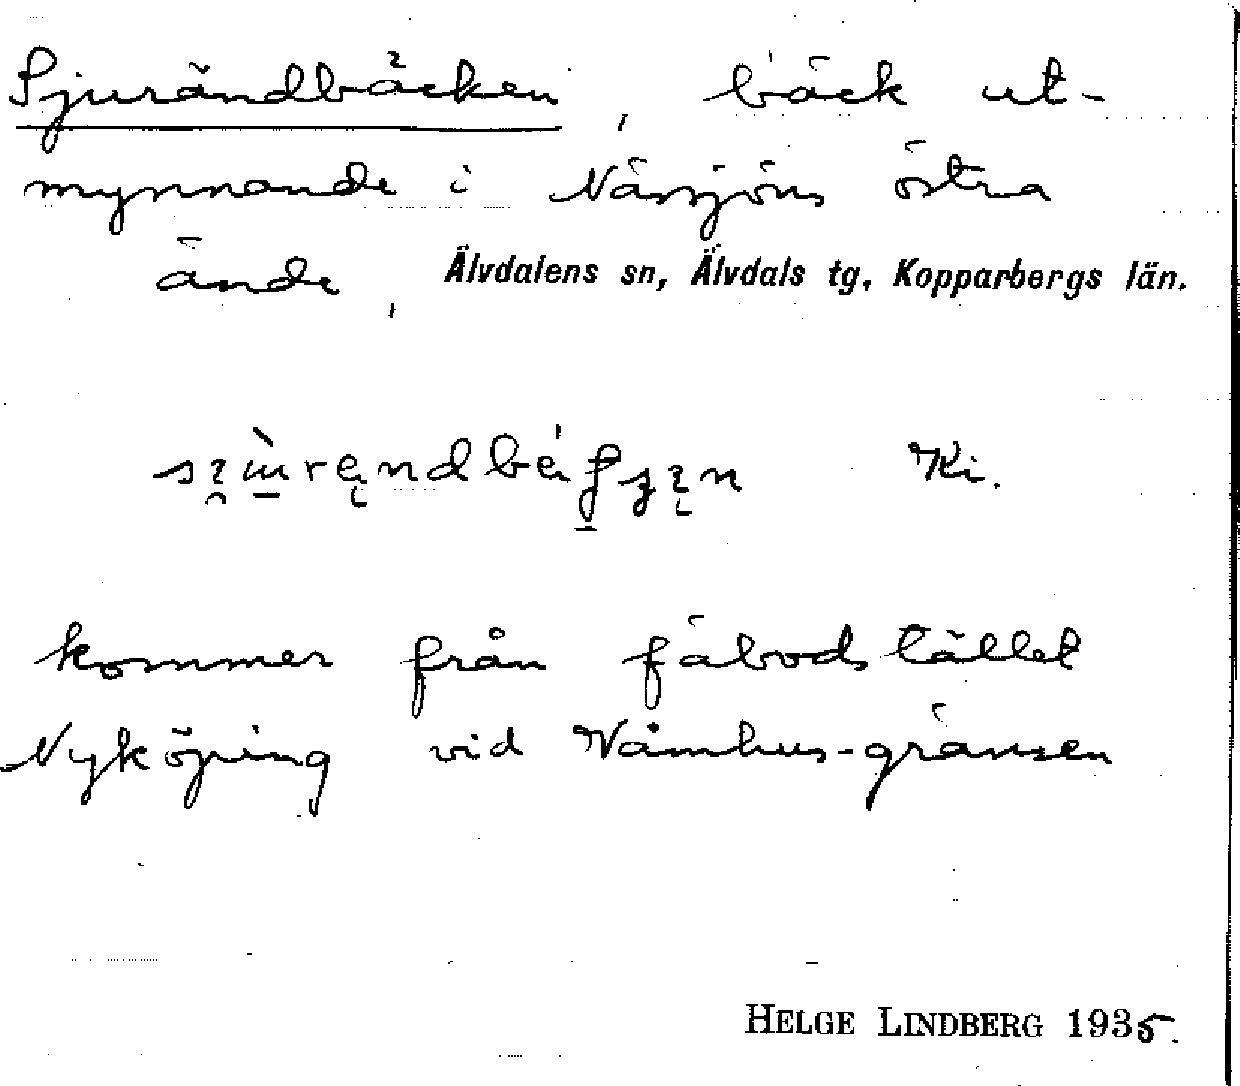 Sjurändbäcken, bäck ut-
mynnande i Nässjöns östra
ände, Älvdalens sn, Älvdals tg, Kopparbergs län.
Ki.
kommer från fäbodstället
Nyköping vid Våmhus-gränsen
HELGE LINDBERG 1935.